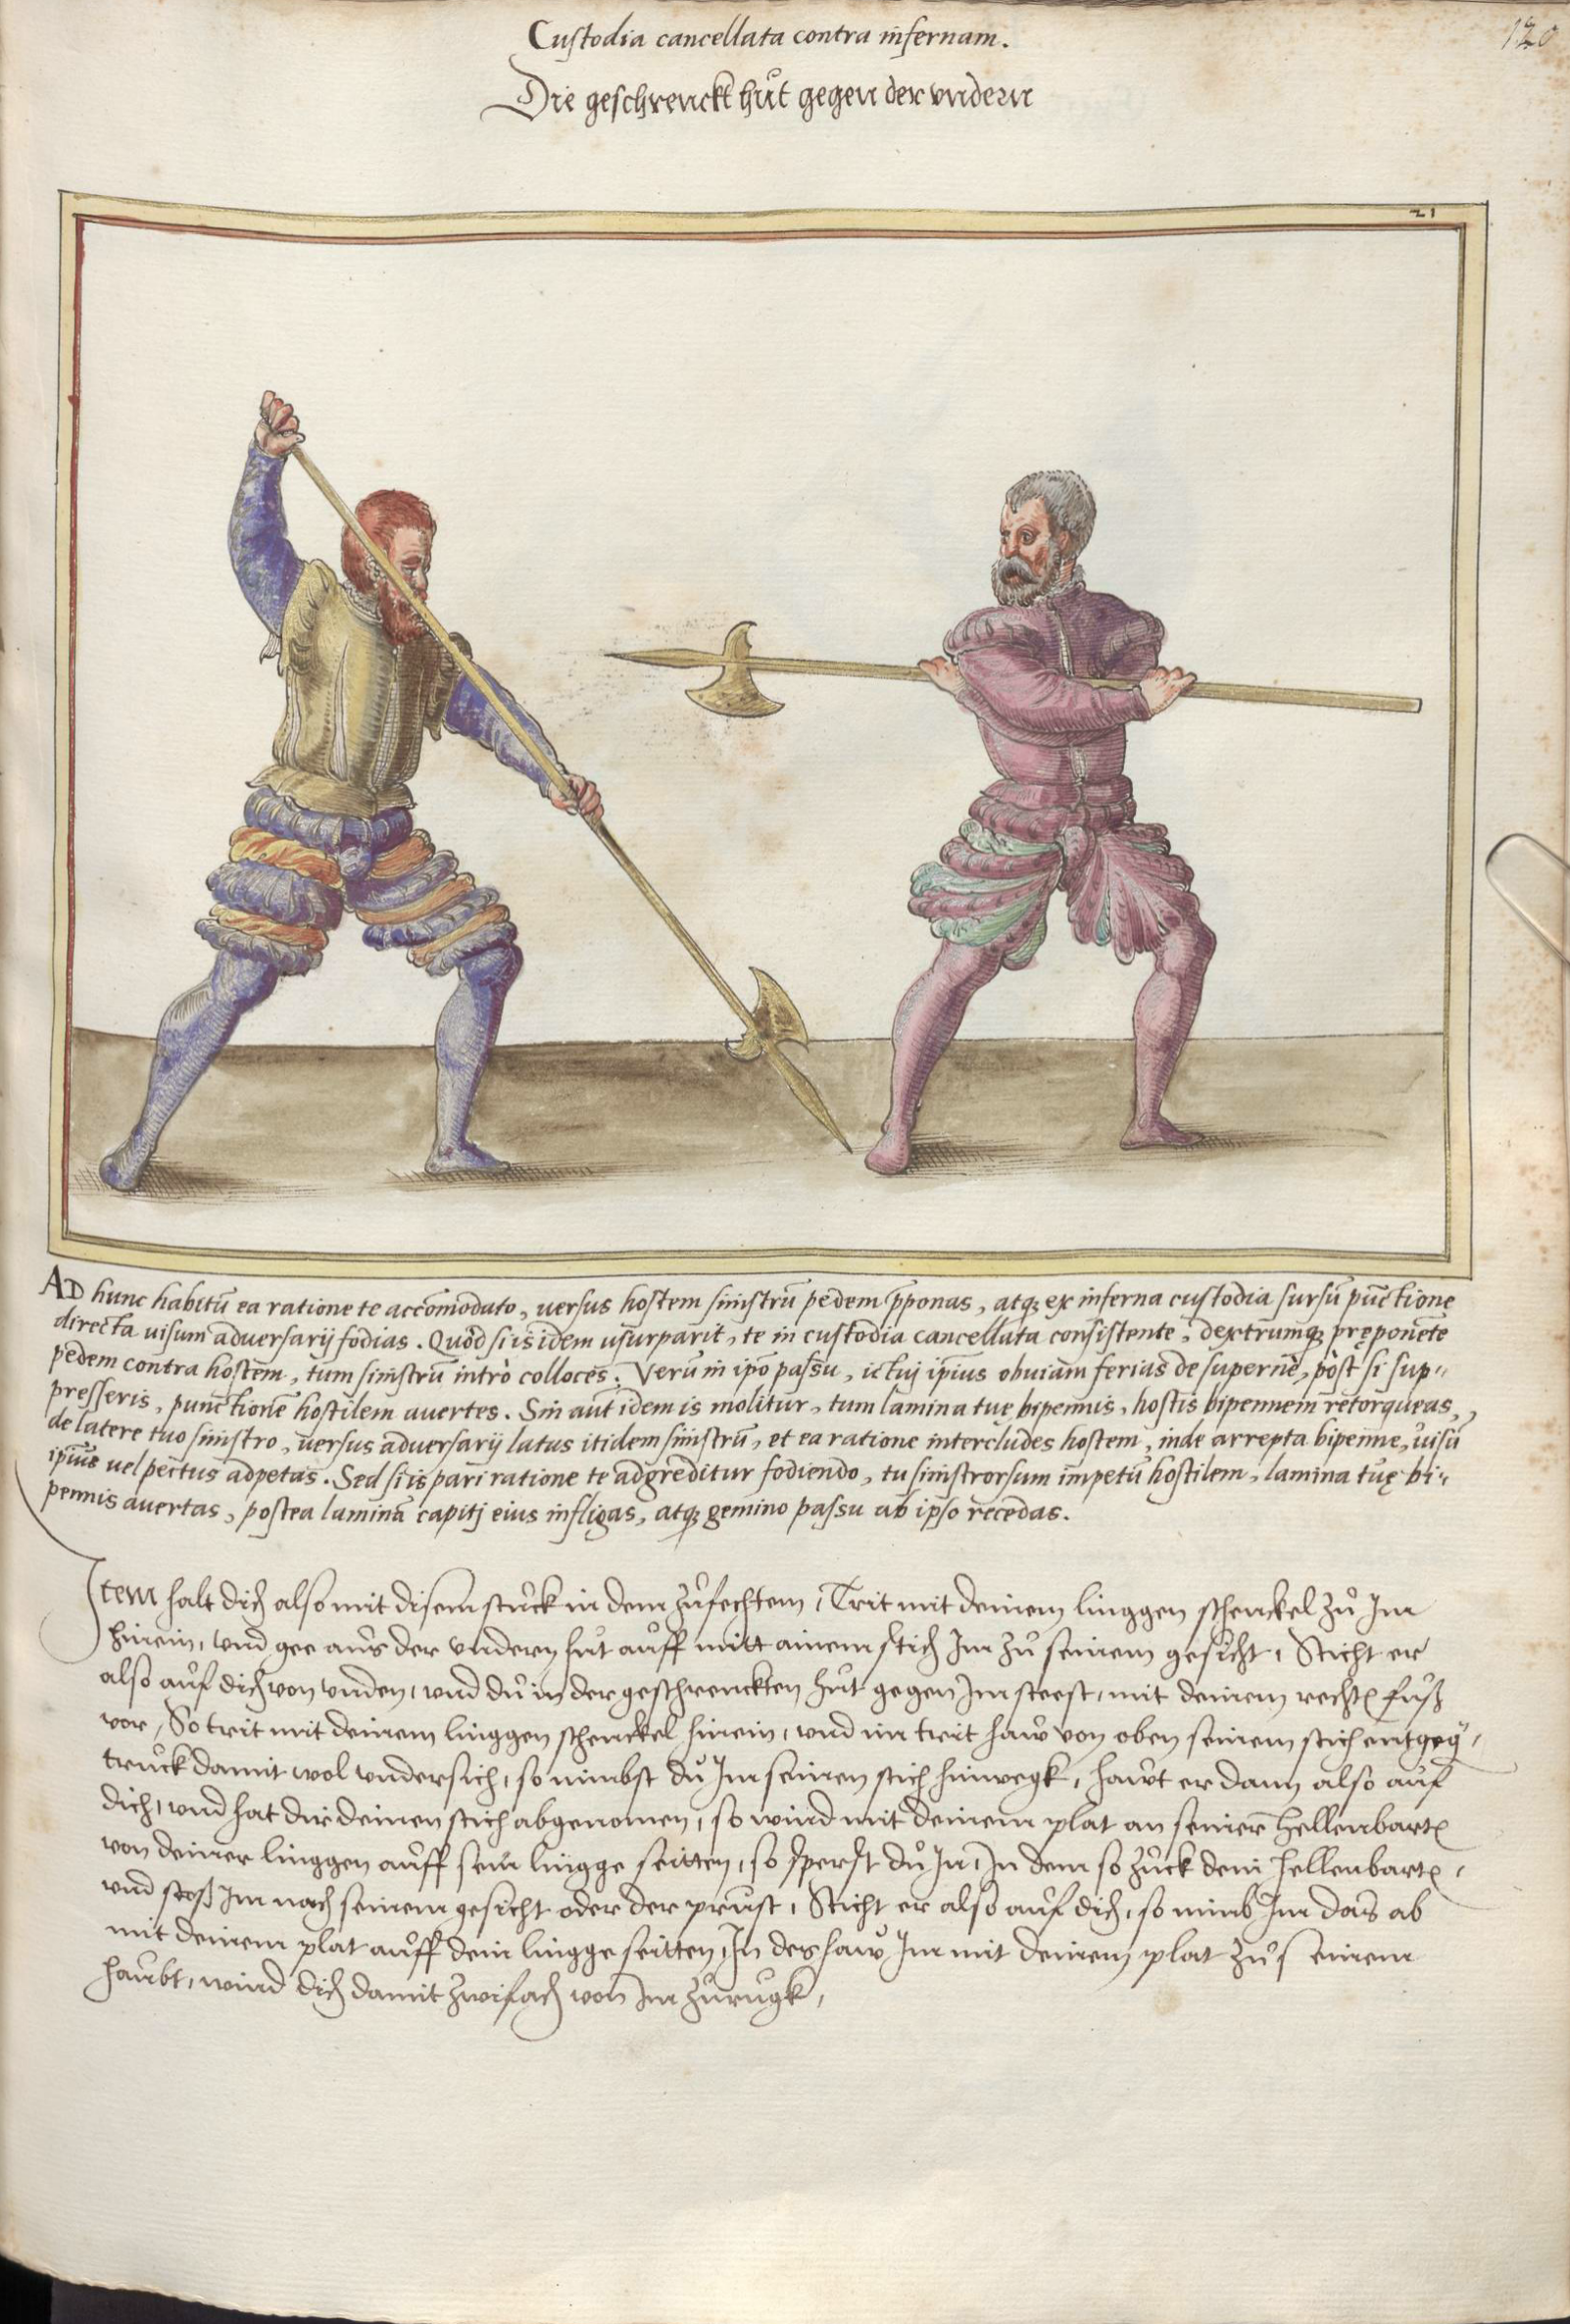 Custodia cancellata contra infernam.
120
Die geschrenckt hůt gegen der vndern
21
AD hunc habitū ea ratione te accōmodato, uersus hostem sinistrū pedem p̄ponas, atq; ex inferna custodia sursū pūctione
directa uisum aduersarij fodias. Quòd si is idem usurparit, te in custodia cancellata consistente, dextrumq; pręponente
pedem contra hostem, tum sinistrū intrò colloces. Verū in ipō passu, ictuj ipīus obuiàm ferias de supernè, pòst si sup-
presseris, punctionē hostilem auertes. Sin aūt idem is molitur, tum lamina tuę bipennis, hostis bipennem retorqueas,
de latere tuo sinistro, uersus aduersarij latus itidem sinistrū, et ea ratione intercludes hostem, inde arrepta bipenne, uisū
ipīus uel pectus adpetas. Sed si is pari ratione te adgreditur fodiendo, tu sinistrorsum impetū hostilem, lamina tuę bi-
pennis auertas, postea laminā capitj eius infligas, atq; gemino passu ab ipso recedas.
Item halt dich also mit disem stuck in dem zůfechten, Trit mit deinem linggen schenckel zů Im
hinein, vnd gee aus der vnderen hůt auff mitt ainem stich Im zů seinem gesicht, Sticht er
also auf dich von vnden, vnd du in der geschrenckten hůt gegen Im steest, mit deinem rechtē fůß
vor, So trit mit deinem linggen schenckel hinein, vnd im trit haw von oben seinem stich entgegē,
truck damit wol vndersich, so nimbst du Im seinen stich hinwegk, hawt er dann also auf
dich, vnd hat dir deinen stich abgenomen, so wind mit deinem plat an seiner hellenbartē
von deiner linggen auff sein lingge seitten, so sperst du In, In dem so zuck dein hellenbartē,
vnd stoß Im nach seinem gesicht oder der prust, Sticht er also auf dich, so nimb Im das ab
mit deinem plat auff dein lingge seitten, In des haw Im mit deinem plat zů seinem
haubt, wind dich damit zwifach von Im zurugk,